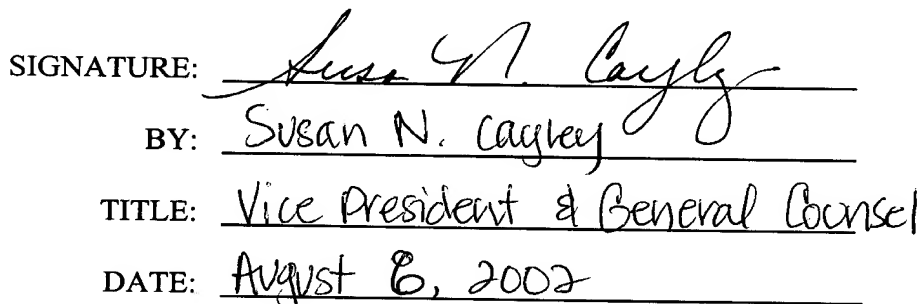 SIGNATURE: Susan N. Cayley
BY: Susan N. Cayley
TITLE: Vice President & General Counsel
DATE: August 6, 2002